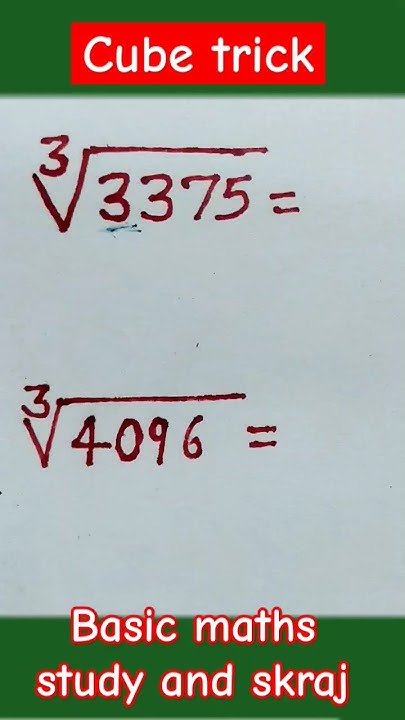 Cube trick
∛3375=
∛4096 =
Basic maths
study and skraj